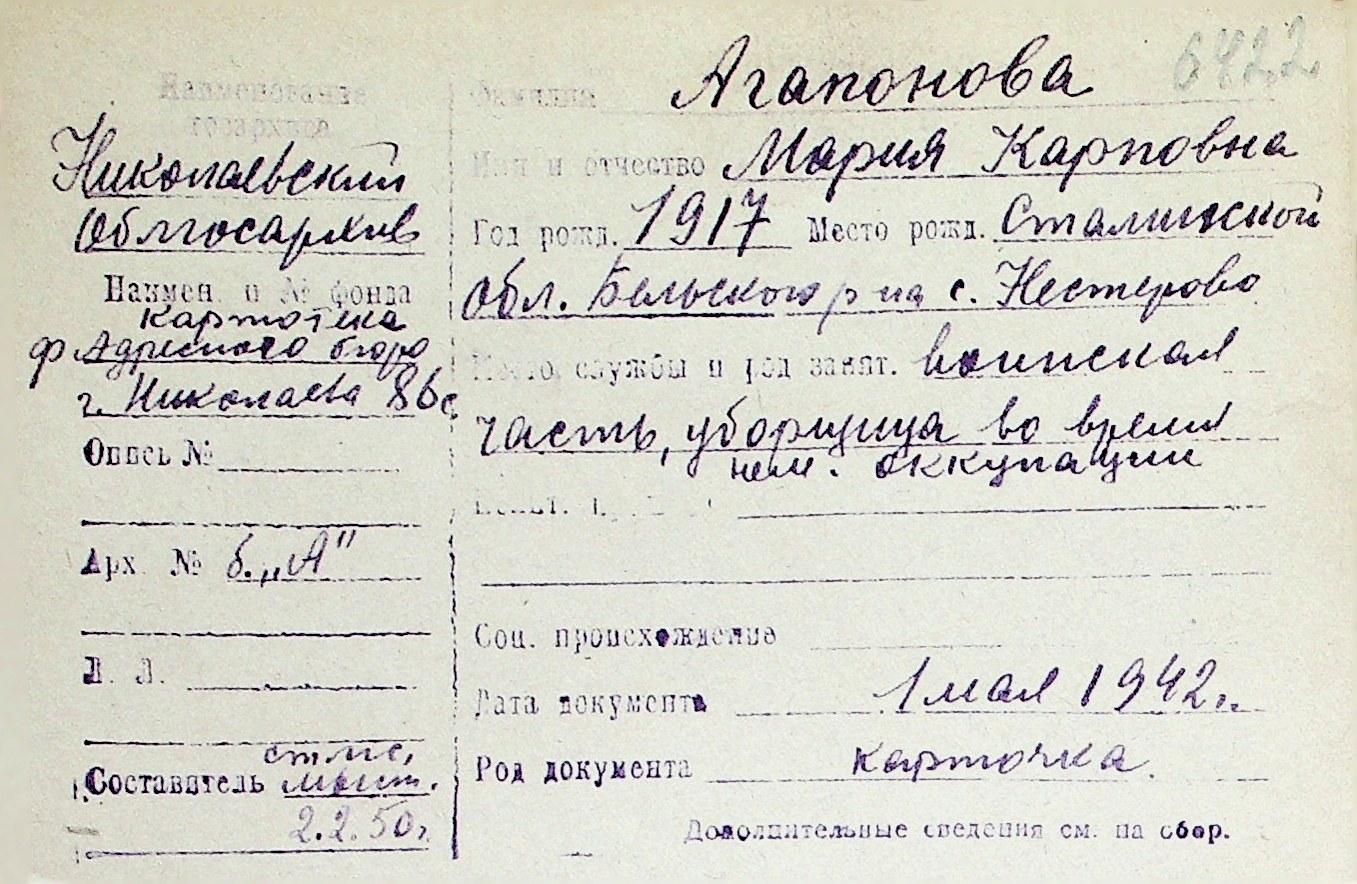 6422
Наименование
госархива
Николаевский
Облгосархив
Наимен. и № фонда
картотека
ф Адресного бюро
г. Николаева 86 с
Опись №
Арх. № б. „А"
Л. Л.
Составитель
2.2.50г.
Фамилия Агапонова
Имя и отчество Мария Карповна
Год рожд. 1917 Место рожд. Сталинской
обл. Бельского р на с. Нестерово
Место службы и род занят. воинская
часть, уборщица во время
нем. оккупации
Соц. происхождение
Дата документа 1 мая 1942г.
Род документа карточка.
Дополнительные сведения см. на обор.